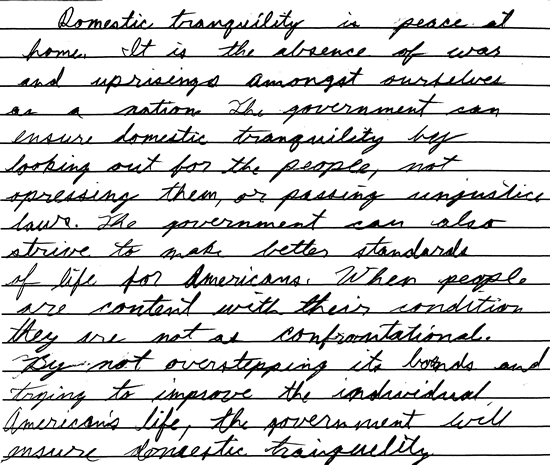 Domestic tranquility is peace at
home. It is the absence of war
and uprisings amongst ourselves
as a nation. The government can
ensure domestic tranquility by
looking out for the people, not
opressing them, or passing unjustice
laws. The government can also
strive to make better standards
of life for Americans. When people
are content with their condition
they are not as confrontational.
By not overstepping its bonds and
trying to improve the individual
American's life, the government will
ensure domestic tranquility